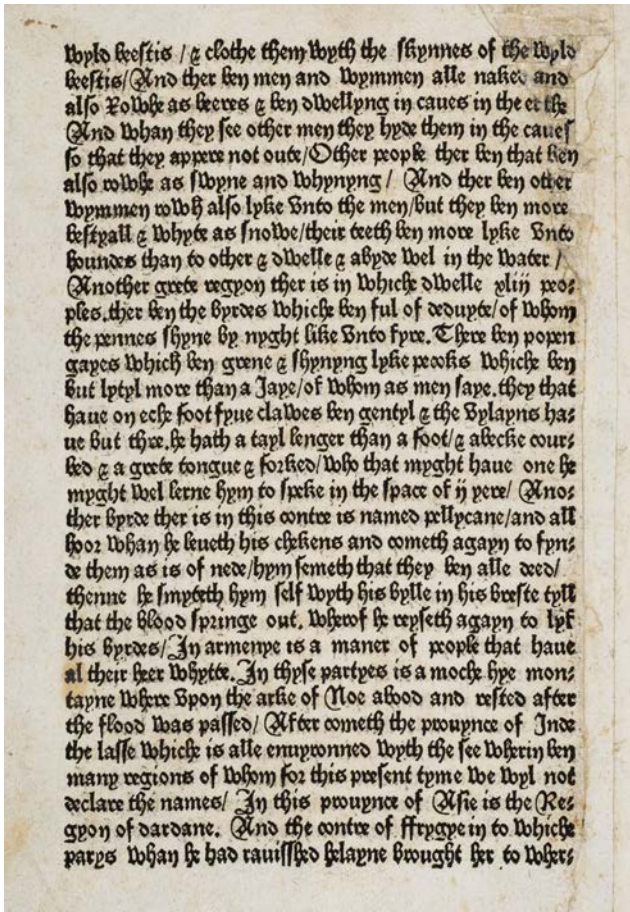 wyld beestis / & clothe them wyth the skynnes of the wyld
beestis/And ther ben men and wymmen alle naked and
also rowhe as beeres & ben dwellyng in caues in the erthe
And whan they see other men they hyde them in the caues
so that they appere not oute/Other people ther ben that ben
also rowhe as swyne and whynyng / And ther ben other
wymmen rowh also lyke vnto the men/but they ben more
bestyall & whyte as snowe/their teeth ben more lyke vnto
houndes than to other & dwelle & abyde wel in the water /
Another grete regyon ther is in whiche dwelle xliij peo⸗
ples.ther ben the byrdes whiche ben ful of deduyte/of whom
the pennes shyne by nyght like vnto fyre.There ben popen
gayes which ben grene & shynyng lyke pecoks whiche ben
but lytyl more than a Jaye/of whom as men saye.they that
haue on eche foot fyue clawes ben gentyl & the vylayns ha⸗
ue but thre.he hath a tayl lenger than a foot/& a becke cour⸗
bed & a grete tongue & forked/who that myght haue one he
myght wel lerne hym to speke in the space of ij yere/ Ano⸗
ther byrde ther is in this contre is named pellycane/and all
hoor whan he leueth his chekens and cometh agayn to fyn⸗
de them as is of nede/hym semeth that they ben alle deed/
thenne he smyteth hym self wyth his bylle in his breste tyll
that the blood springe out. wherof he reyseth agayn to lyf
his byrdes/In armenye is a maner of people that haue
al their heer whytte.In thyse partyes is a moche hye mon⸗
tayne where vpon the arke of Noe abood and rested after
the flood was passed/ After cometh the prouynce of Inde
the lasse whiche is alle enuyronned wyth the see wherin ben
many regions of whom for this present tyme we wyl not
declare the names/ In this prouynce of Asie is the Re⸗
gyon of dardane. And the contre of ffrygye in to whiche
parys whan he had rauisshed helayne brought her to wher⸗